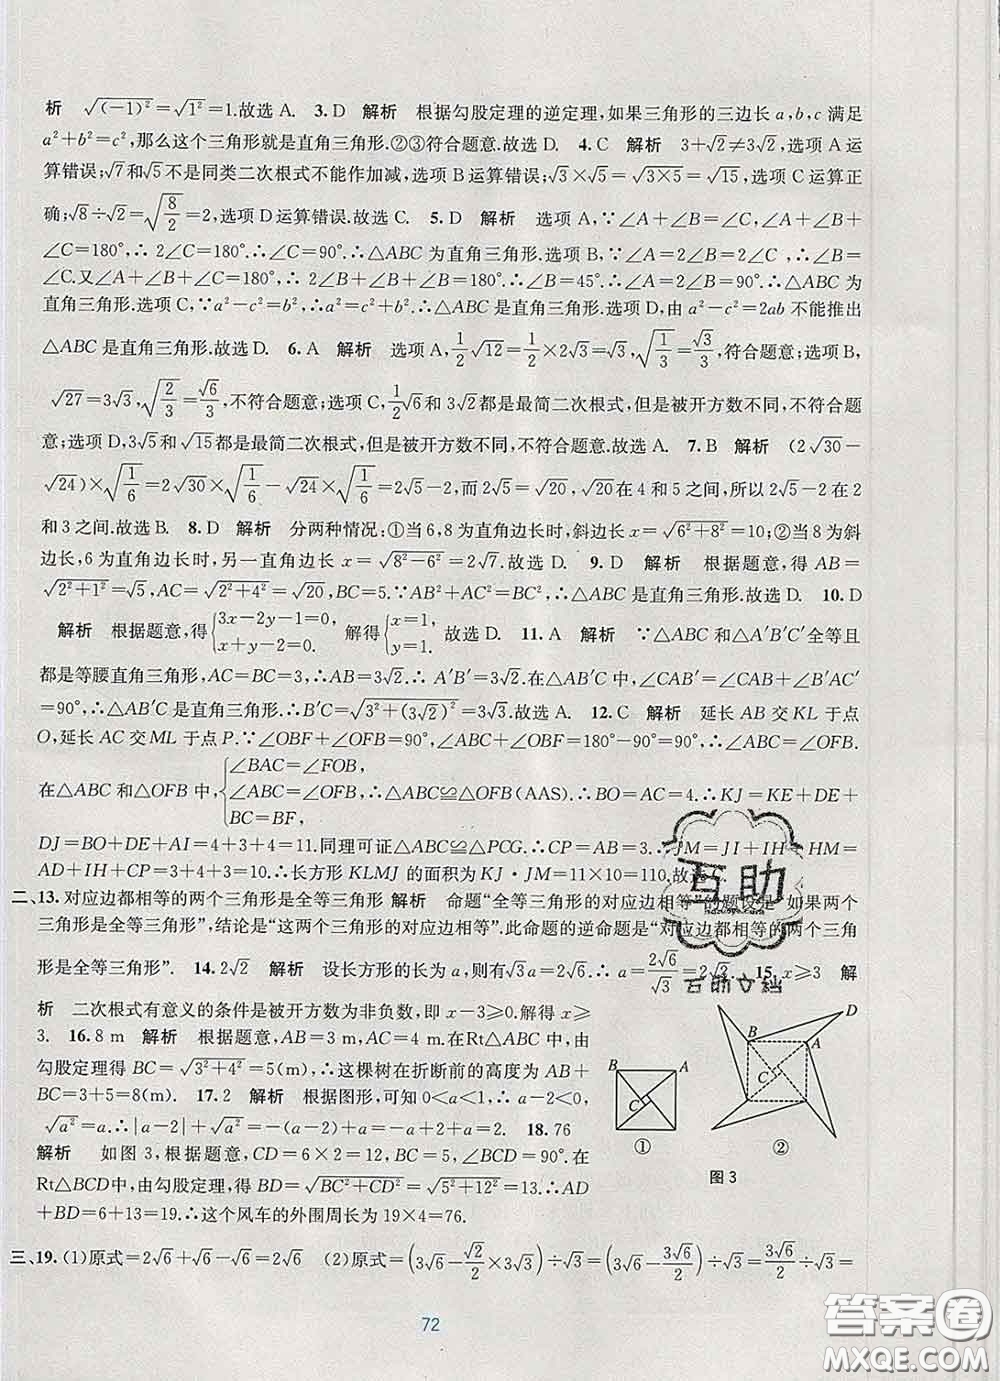 析 √(-1)²=√1²=1.故选A. 3.D 解析 根据勾股定理的逆定理,如果三角形的三边长a,b,c满足
a²+b²=c²,那么这个三角形就是直角三角形.②③符合题意.故选D. 4.C 解析 3+√2≠3√2,选项A运
算错误;√7和√5不是同类二次根式不能作加减,选项B运算错误;√3×√5=√(3×5)=√15,选项C运算正
确;√8÷√2=√(8/2)=2,选项D运算错误.故选C. 5.D 解析 选项A,∵∠A+∠B=∠C,∠A+∠B+
∠C=180°,∴2∠C=180°.∴∠C=90°.∴△ABC为直角三角形.选项B,∵∠A=2∠B=2∠C,∴∠B=
∠C.又∠A+∠B+∠C=180°,∴2∠B+∠B+∠B=180°.∴∠B=45°.∴∠A=2∠B=90°.∴△ABC为
直角三角形.选项C,∵a²-c²=b²,∴a²=c²+b².∴△ABC是直角三角形.选项D,由a²-c²=2ab不能推出
△ABC是直角三角形.故选D. 6.A 解析 选项A,1/2√12=1/2×2√3=√3,√(1/3)=√3/3,符合题意;选项B,
√27=3√3,√(2/3)=√6/3,不符合题意;选项C,1/2√6和3√2都是最简二次根式,但是被开方数不同,不符合题
意;选项D,3√5和√15都是最简二次根式,但是被开方数不同,不符合题意.故选A. 7.B 解析 (2√30-
√24)×√(1/6)=2√30×√(1/6)-√24×√(1/6)=2√5-2,而2√5=√20,√20在4和5之间,所以2√5-2在2
和3之间.故选B. 8.D 解析 分两种情况:①当6,8为直角边长时,斜边长x=√(6²+8²)=10;②当8为斜
边长,6为直角边长时,另一直角边长x=√(8²-6²)=2√7.故选D. 9.D 解析 根据题意,得AB=
√(2²+1²)=√5,AC=√(2²+4²)=√20,BC=5.∵AB²+AC²=BC²,∴△ABC是直角三角形.故选D. 10.D
解析 根据题意,得{3x-2y-1=0, x+y-2=0. 解得{x=1, y=1. 故选D. 11.A 解析 ∵△ABC和△A′B′C′全等且
都是等腰直角三角形,AC=BC=3,∴AB=3√2.∴A′B′=3√2.在△AB′C中,∠CAB′=∠CAB+∠B′AC′
=90°,∴△AB′C是直角三角形.∴B′C=√(3²+(3√2)²)=3√3.故选A. 12.C 解析 延长AB交KL于点
O,延长AC交ML于点P.∵∠OBF+∠OFB=90°,∠ABC+∠OBF=180°-90°=90°,∴∠ABC=∠OFB.
在△ABC和△OFB中,{∠BAC=∠FOB, ∠ABC=∠OFB, BC=BF, ∴△ABC≌△OFB(AAS).∴BO=AC=4.∴KJ=KE+DE+
DJ=BO+DE+AI=4+3+4=11.同理可证△ABC≌△PCG.∴CP=AB=3.∴JM=JI+IH+HM=
AD+IH+CP=4+3+3=10.∴长方形KLMJ的面积为KJ·JM=11×10=110.故选
二、13.对应边都相等的两个三角形是全等三角形 解析 命题“全等三角形的对应边相等”的题设是“如果两个
三角形是全等三角形”,结论是“这两个三角形的对应边相等”.此命题的逆命题是“对应边都相等的两个三角
形是全等三角形”. 14.2√2 解析 设长方形的长为a,则有√3a=2√6.∴a=2√6/√3=2√2. 15.x≥3 解
析 二次根式有意义的条件是被开方数为非负数,即x-3≥0.解得x≥
3. 16.8 m 解析 根据题意,AB=3 m,AC=4 m.在Rt△ABC中,由
勾股定理得BC=√(3²+4²)=5(m),∴这棵树在折断前的高度为AB+
BC=3+5=8(m). 17.2 解析 根据图形,可知0<a<1,a-2<0,
√a²=a.∴|a-2|+√a²=-(a-2)+a=-a+2+a=2. 18.76
解析 如图3,根据题意,CD=6×2=12,BC=5,∠BCD=90°.在
Rt△BCD中,由勾股定理,得BD=√(BC²+CD²)=√(5²+12²)=13.∴AD
+BD=6+13=19.∴这个风车的外围周长为19×4=76.
B
A
C
①
B
A
C
D
②
图3
三、19.(1)原式=2√6+√6-√6=2√6 (2)原式=(3√6-√2/2×3√3)÷√3=(3√6-3√6/2)÷√3=3√6/2÷√3=
72
互助
互助文档
答案圈
MXQE.COM